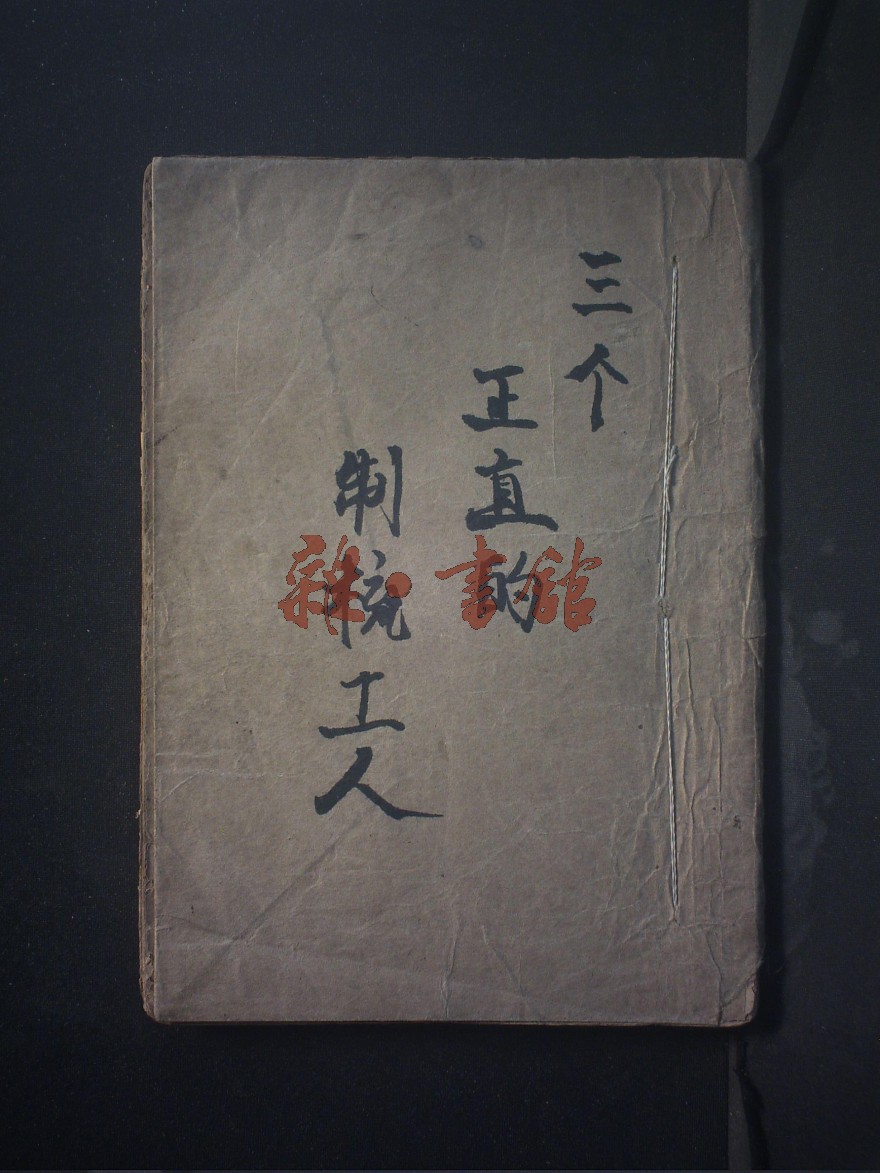 三个
正直的
制梳工人
雜·書館